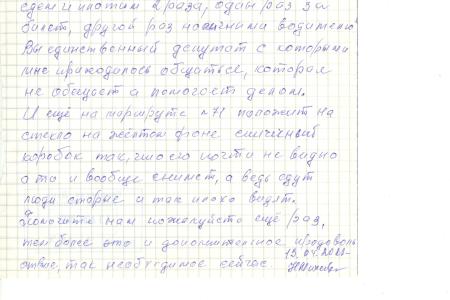 едем и платим 2 раза, один раз за
билет, другой раз наличными водителю
Вы единственный депутат с которыми
мне приходилось общаться, которая
не обещает а помогает делом.
И ещё на маршруте №71 положит на
стекло на жёлтом фоне спичечный
коробок так, что его почти не видно
а то и вообще снимет, а ведь едут
люди старые и так плохо видят.
Помогите нам пожалуйста ещё раз,
тем более это и дополнительное продоволь
ствие, так необходимое сейчас